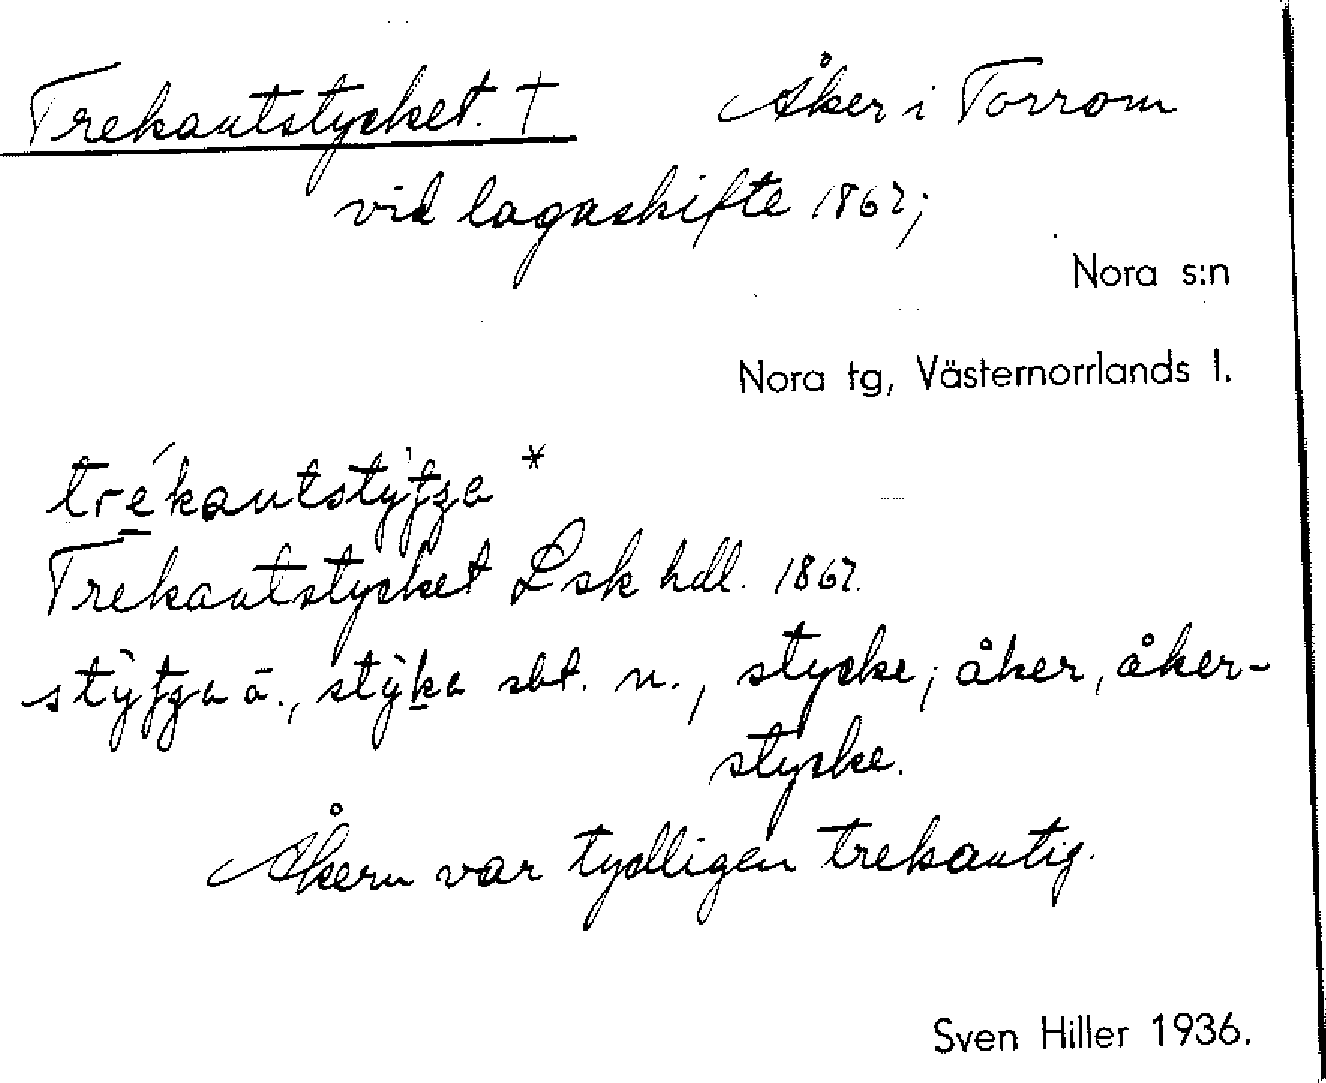 Trekantstycket. † Åker i Torrom
vid lagaskifte 1867;
Nora s:n
Nora tg, Västernorrlands l.
Trekantstycket Lsk hdl. 1867.
sbt. n., stycke; åker, åker-
stycke.
Åkern var tydligen trekantig.
Sven Hiller 1936.